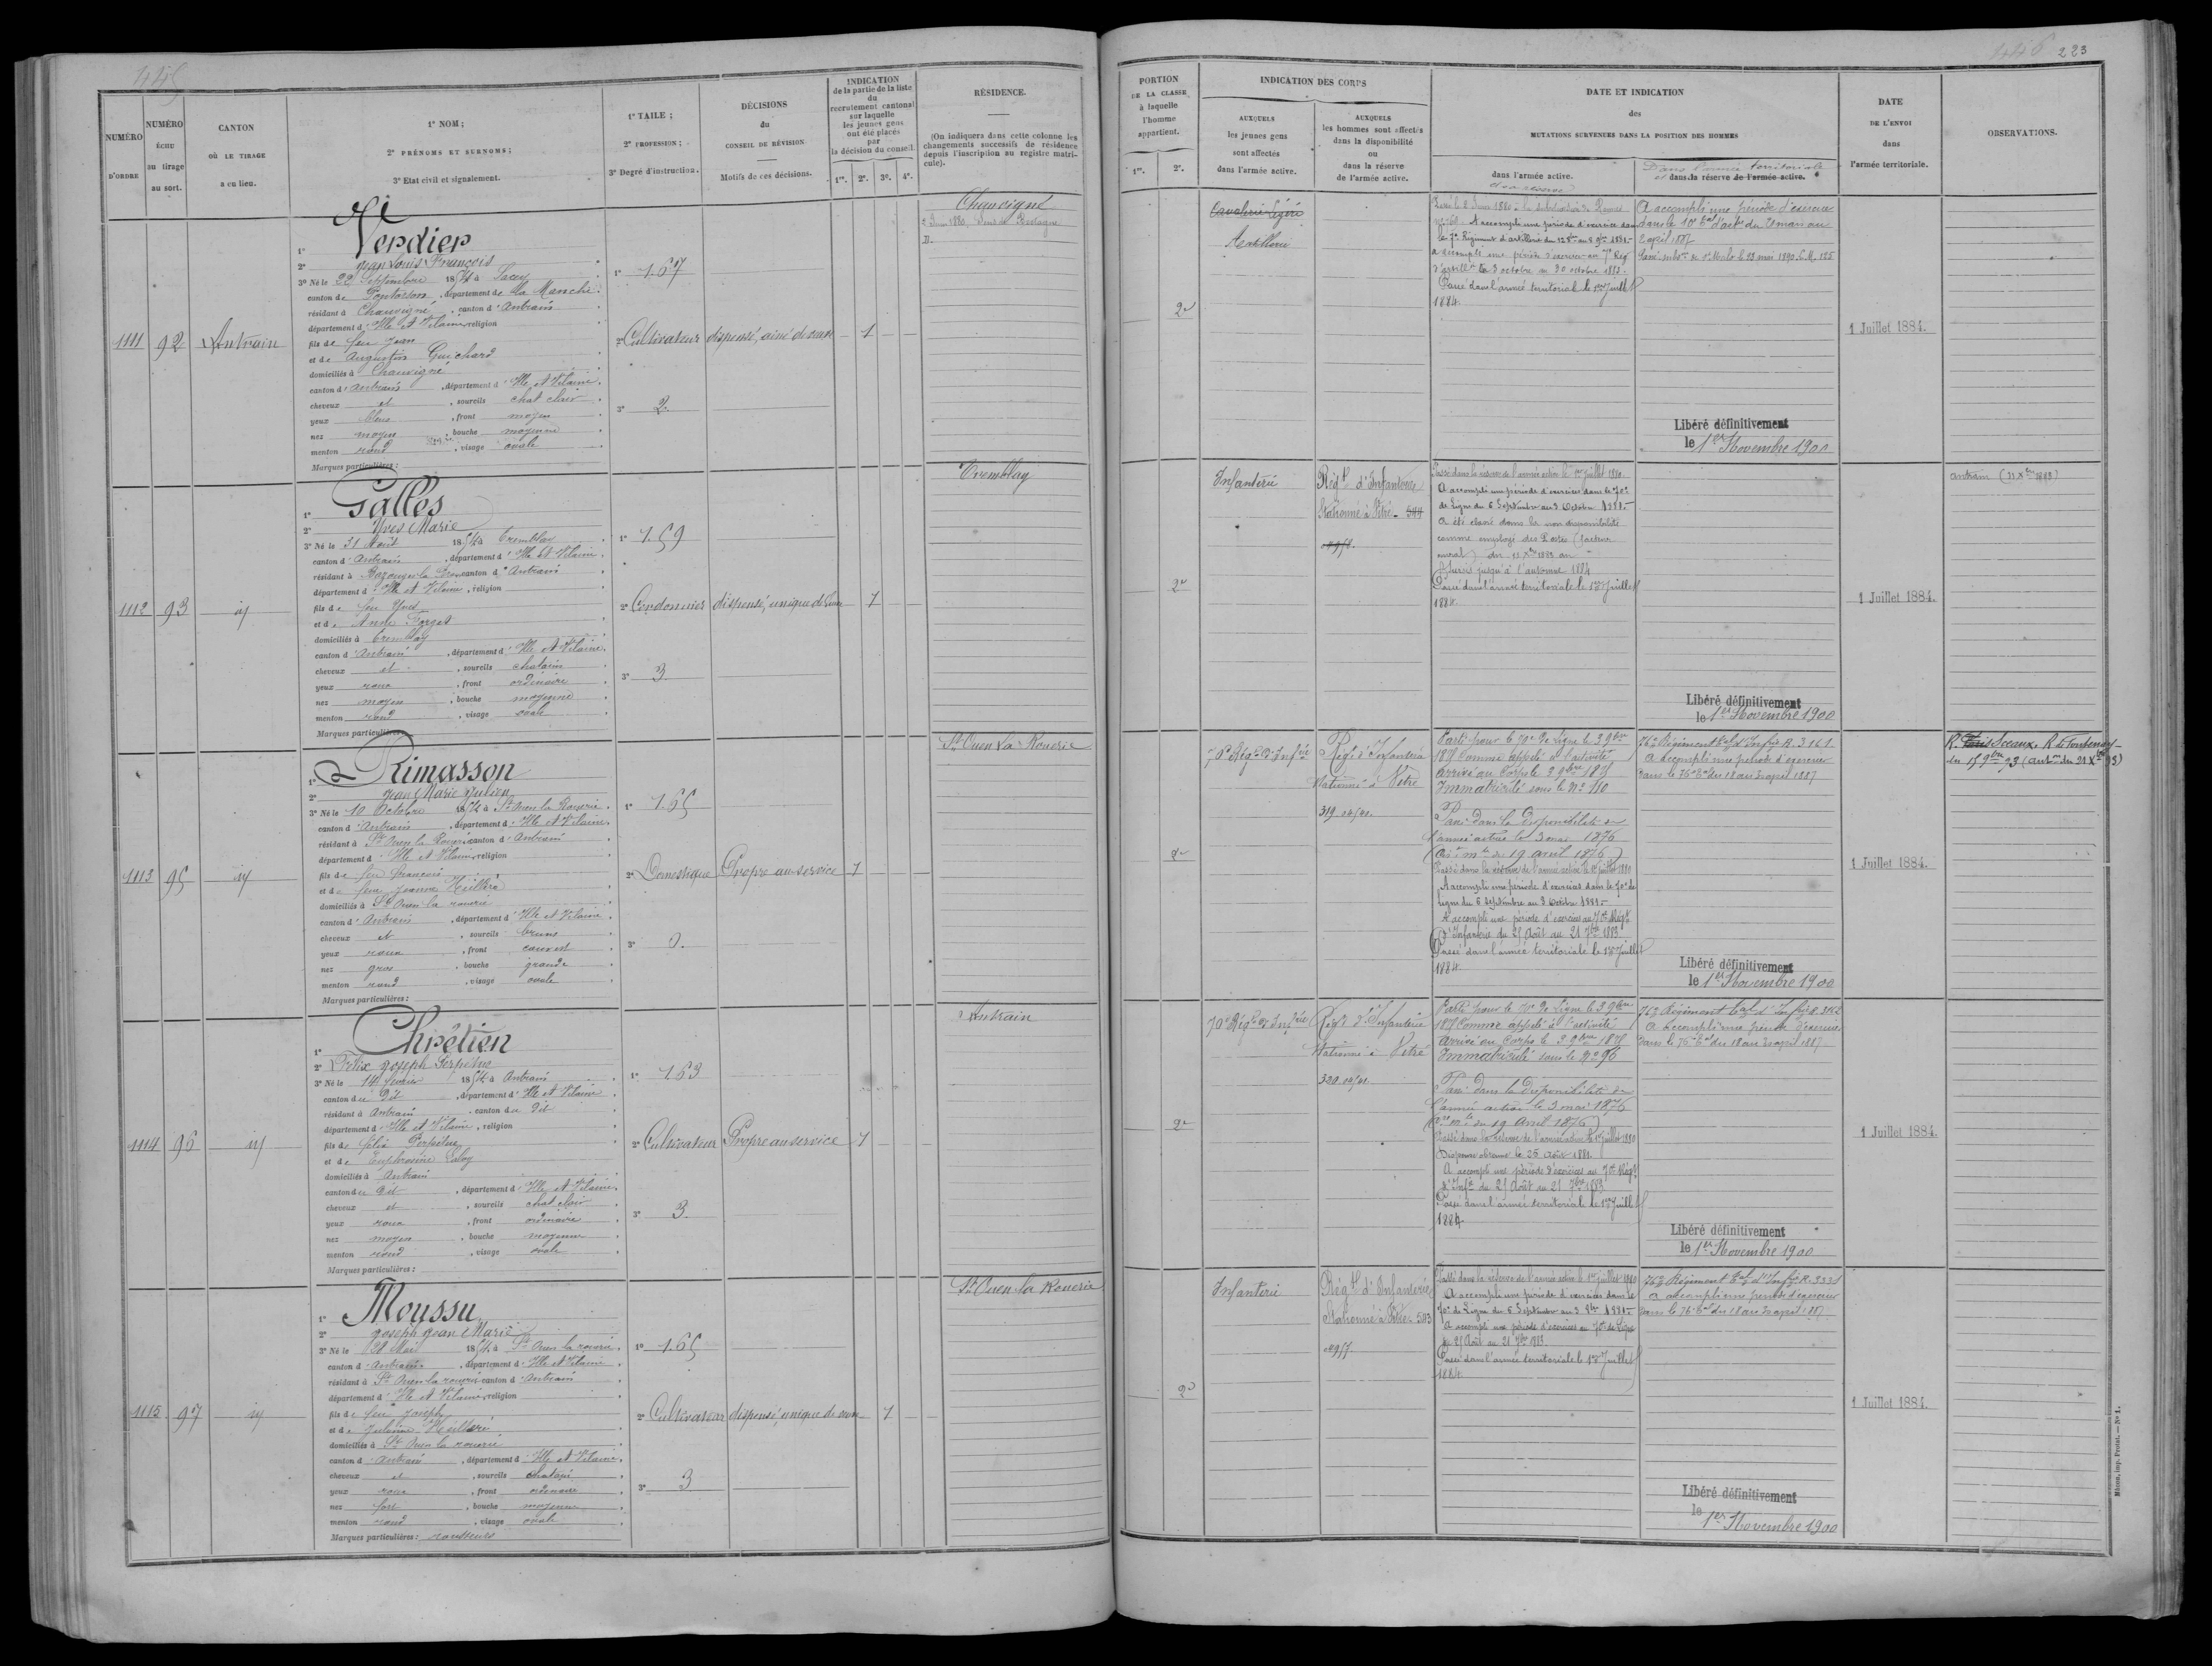 445
NUMÉRO
D'ORDRE
NUMÉRO
échu
au tirage
au sort.
CANTON
où le tirage
a eu lieu.
1° NOM;
2° PRÉNOMS ET SURNOMS;
3° Etat civil et signalement.
1° TAILE;
2° PROFESSION;
3° Degré d'instruction.
DÉCISIONS
du
CONSEIL DE RÉVISION
Motifs de ces décisions.
INDICATION
de la partie de la liste
du
recrutement cantonal
sur laquelle
les jeunes gens
ont été placés
par
la décision du conseil.
1re. 2e. 3e. 4e.
RÉSIDENCE.
(On indiquera dans cette colonne les
changements successifs de résidence
depuis l'inscription au registre matri-
cule).
1111
92
Antrain
1° Verdier
2° Jean Louis François
3° Né le 22 Septembre 1854 à Sacey
canton de Pontorson, département de la Manche
résidant à Chauvigné, canton d'Antrain
département d'Ille et Vilaine, religion
fils de feu Jean
et de Augustine Guichard
domiciliés à Chauvigné
canton d'Antrain, département d'Ille et Vilaine
cheveux et, sourcils chat clair
yeux bleus, front moyen
nez moyen, bouche moyenne
menton rond, visage ovale
Marques particulières:
1° 1.67
2° Cultivateur
3° 2.
dispensé, ainé de veuve
1
Chauvigné
1112
93
id
1° Galles
2° Yves Marie
3° Né le 31 Août 1854 à Tremblay
canton d'Antrain, département d'Ille et Vilaine
résidant à Bazouges la Pérouse canton d'Antrain
département d'Ille et Vilaine, religion
fils de feu Yves
et de Anne Forget
domiciliés à Tremblay
canton d'Antrain, département d'Ille et Vilaine
cheveux et, sourcils chatains
yeux roux, front ordinaire
nez moyen, bouche moyenne
menton rond, visage ovale
Marques particulières:
1° 1.59
2° Cordonnier
3° 3
dispensé, unique de veuve
1
Tremblay
1113
95
id
1° Rimasson
2° Jean Marie Julien
3° Né le 10 Octobre 1854 à St Ouen la Rouerie
canton d'Antrain, département d'Ille et Vilaine
résidant à St Ouen la Rouerie canton d'Antrain
département d'Ille et Vilaine, religion
fils de feu François
et de feue Jeanne
domiciliés à St Ouen la rouerie
canton d'Antrain, département d'Ille et Vilaine
cheveux et, sourcils bruns
yeux roux, front couvert
nez gros, bouche grande
menton rond, visage ovale
Marques particulières:
1° 1.65
2° Domestique
3° 0.
Propre au service
1
St Ouen La Rouerie
1114
96
id
1° Chrétien
2° Félix Joseph Perpétue
3° Né le 14 février 1854 à Antrain
canton du dit, département d'Ille et Vilaine
résidant à Antrain, canton du dit
département d'Ille et Vilaine, religion
fils de félix Perpétue
et de Euphrosine
domiciliés à Antrain
canton du dit, département d'Ille et Vilaine
cheveux et, sourcils chat clair
yeux roux, front ordinaire
nez moyen, bouche moyenne
menton rond, visage ovale
Marques particulières:
1° 1.63
2° Cultivateur
3° 3.
Propre au service
1
Antrain
1115
97
id
1° Moussu
2° Joseph Jean Marie
3° Né le 28 Mai 1854 à St Ouen la rouerie
canton d'Antrain, département d'Ille et Vilaine
résidant à St Ouen la rouerie canton d'Antrain
département d'Ille et Vilaine, religion
fils de feu Joseph
et de Julienne
domiciliés à St Ouen la rouerie
canton d'Antrain, département d'Ille et Vilaine
cheveux et, sourcils chatains
yeux roux, front ordinaire
nez fort, bouche moyenne
menton rond, visage ovale
Marques particulières: rousseurs
1° 1.65
2° Cultivateur
3° 3
dispensé, unique de veuve
1
St Ouen la Rouerie
446 223
PORTION
DE LA CLASSE
à laquelle
l'homme
appartient.
1re. 2e.
INDICATION DES CORPS
AUXQUELS
les jeunes gens
sont affectés
dans l'armée active.
AUXQUELS
les hommes sont affectés
dans la disponibilité
ou
dans la réserve
de l'armée active.
DATE ET INDICATION
des
MUTATIONS SURVENUES DANS LA POSITION DES HOMMES
dans l'armée active.
et sa réserve
Dans l'armée territoriale
et dans la réserve de l'armée active.
DATE
DE L'ENVOI
dans
l'armée territoriale.
OBSERVATIONS.
2e
Cavalerie Légère
Artillerie
A accompli une période d'exercices dans
le 7e Régiment d'artillerie du 12 8bre au 8 9bre 1881.
A accompli une période d'exercices au 7e Rég
d'artillie du 3 octobre au 30 octobre 1883.
Passé dans l'armée territorial le 1er Juillet
1884.
A accompli une période d'exercices
dans le 10e d'art. du 21 mars au
2 april 1887
Libéré définitivement
le 1er Novembre 1900
1 Juillet 1884.
2e
Infanterie
Régt d'Infanterie
Stationné à Vitré
Passé dans la réserve de l'armée active le 1er juillet 1880.
A accompli une période d'exercices dans le 70e
de Ligne du 6 Septembre au 3 Octobre 1881.
A été classé dans la non disponibilité
comme employé des Postes (facteur
rural) du 12 Xbre 1883 au
Sursis jusqu'à l'automne 1884
Passé dans l'armée territoriale le 1er Juillet
1884.
Libéré définitivement
le 1er Novembre 1900
1 Juillet 1884.
2e
70e Régt d'Infrie
Régt d'Infanterie
Stationné à Vitré
Parti pour le 70e de Ligne le 3 9bre
1875 Comme appelé à l'activité
Arrivé au Corps le 3 9bre 1875
Immatriculé sous le No 110
Passé dans la disponibilité de
l'armée active le 3 mai 1876
du 19 avril 1876)
Passé dans la réserve de l'armée active le 1er juillet 1880
A accompli une période d'exercices dans le 70e de
Ligne du 6 septembre au 3 Octobre 1881.
A accompli une période d'exercices au 70e Régt
d'Infanterie du 25 Août au 21 7bre 1883
Passé dans l'armée territoriale le 1er juillet
1884.
76e Régiment tal d'Infie R. 3161
A accompli une période d'exercices
dans le 76e du 18 au 30 april 1887
Libéré définitivement
le 1er Novembre 1900
1 Juillet 1884.
R. Paris Sceaux. R. de Fontenay
2e
70e Régt d'Infrie
Régt d'Infanterie
Stationné à Vitré
Parti pour le 70e de Ligne le 3 9bre
1875 Comme appelé à l'activité
Arrivé au Corps le 3 9bre 1875
Immatriculé sous le No 96
Passé dans la disponibilité de
l'armée active le 3 mai 1876
du 19 Avril 1876)
Passé dans la réserve de l'armée active le 1er juillet 1880
Dispense obtenue le 25 Août 1881.
A accompli une période d'exercices au 70e Régt
d'Infie du 25 Août au 21 7bre 1883
Passé dans l'armée territoriale le 1er Juillet
1884
76e Régiment tal d'Infie R. 3162
A accompli une période d'exercices
dans le 76e du 18 au 30 april 1887
Libéré définitivement
le 1er Novembre 1900
1 Juillet 1884.
2e
Infanterie
Régt d'Infanterie
Stationné à Vitré 503
Passé dans la réserve de l'armée active le 1er juillet 1880
A accompli une période d'exercices dans le
70e de Ligne du 6 Septembre au 3 8bre 1881.
A accompli une période d'exercices au 70e de Ligne
du 25 Août au 21 7bre 1883.
Passé dans l'armée territoriale le 1er Juillet
1884.
76e Régiment tal d'Infie R. 3331
a accompli une période d'exercices
dans le 76e du 18 au 30 april 1887
Libéré définitivement
le 1er Novembre 1900
1 Juillet 1884.
Mâcon, imp. Protat. — No 1.